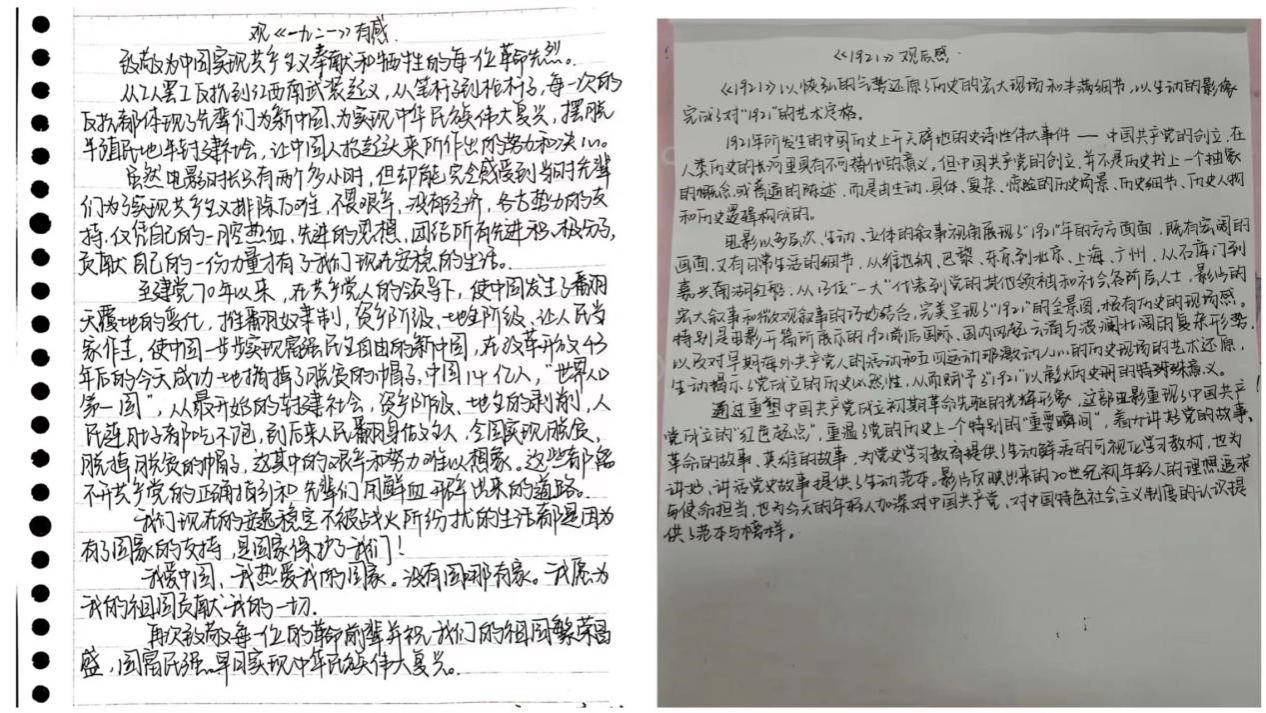 观《一九二一》有感
致敬为中国实现共产主义奉献和牺牲的每一位革命先烈。
从工人罢工反抗到江西南武装起义，从笔杆子到枪杆子，每一次的
反抗都体现了先辈们为新中国，为实现中华民族伟大复兴，摆脱
半殖民地半封建社会，让中国人抬起头来所作出的努力和决心。
虽然电影时长只有两个多小时，但却能完全感受到当时先辈
们为了实现共产主义排除万难，不畏艰辛，没有经济，各方势力的支
持，仅凭自己的一腔热血、先进的思想，团结所有先进积极分子，
贡献自己的一份力量才有了我们现在安稳的生活。
至建党70年以来，在共产党人的领导下，使中国发生了翻
天覆地的变化，推翻奴隶制，资产阶级、地主阶级，让人民当
家作主，使中国一步步实现富强民主自由的新中国，在改革开放43
年后的今天成功地摘掉了脱贫的帽子，中国14亿人，“世界人口
第一国”，从最开始的封建社会，资产阶级、地主的剥削，人
民连肚子都吃不饱，到后来人民翻身做主人，全国实现脱贫，
脱掉脱贫的帽子，这其中的艰辛和努力难以想象。这些都离
不开共产党的正确指引和先辈们用鲜血开辟出来的道路。
我们现在的安逸稳定不被战火所纷扰的生活都是因为
有了国家的支持，是国家保护了我们！
我爱中国，我热爱我的国家。没有国哪有家。我愿为
我的祖国贡献我的一切.
再次致敬每一位的革命前辈并祝我们的祖国繁荣昌
盛，国富民强。早日实现中华民族伟大复兴。
《1921》观后感.
《1921》以恢弘的气势还原了历史的宏大现场和丰满细节，以生动的影像
完成了对“1921”的艺术定格。
1921年所发生的中国历史上开天辟地的史诗性伟大事件——中国共产党的创立，在
人类历史的长河里具有不可替代的意义。但中国共产党的创立，并不是历史书上一个抽象
的概念或普通的陈述，而是由生动、具体、复杂、惊险的历史场景、历史细节、历史人物
和历史逻辑构成的。
电影以多层次、生动、立体的叙事视角展现了“1921”年的方方面面，既有宏阔的
画面，又有日常生活的细节，从维也纳、巴黎、东京到北京、上海、广州，从石库门到
嘉兴南湖红船，从13位“一大”代表到党的其他领袖和社会各阶层人士，影片的
宏大叙事和微观叙事的巧妙结合，完美呈现了“1921”的全景图，极有历史的现场感。
特别是电影开篇所展示的1921前后国际、国内风起云涌与波澜壮阔的复杂形势，
以及对早期海外共产党人的活动和五四运动那激动人心的历史现场的艺术还原，
生动揭示了党成立的历史必然性，从而赋予了“1921”以彪炳史册的特殊意义。
通过重塑中国共产党成立初期革命先驱的光辉形象，这部电影重现了中国共产
党成立的“红色起点”，重温了党的历史上一个特别的“重要瞬间”，着力讲好党的故事、
革命的故事、英雄的故事，为党史学习教育提供了生动鲜活的可视化学习教材，也为
讲好、讲活党史故事提供了生动范本。影片反映出来的20世纪初年轻人的理想追求
与使命担当，也为今天的年轻人加深对中国共产党、对中国特色社会主义制度的认识提
供了范本与榜样。